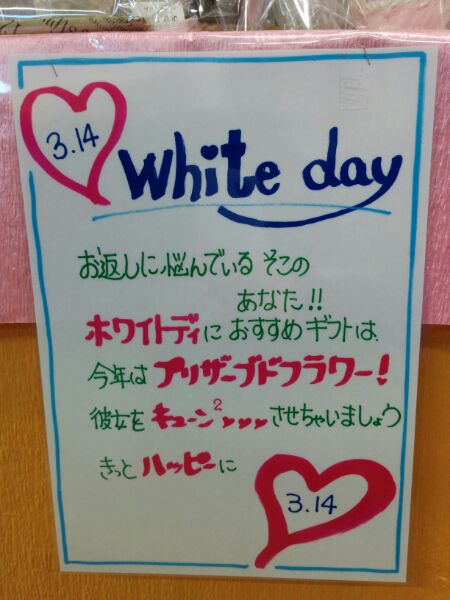 3.14
White day
お返しに悩んでいる そこの
あなた!!
ホワイトディに おすすめ ギフトは、
今年は プリザーブドフラワー!
彼女を キューン²ッッッ させちゃいましょう
きっと ハッピーに
3.14